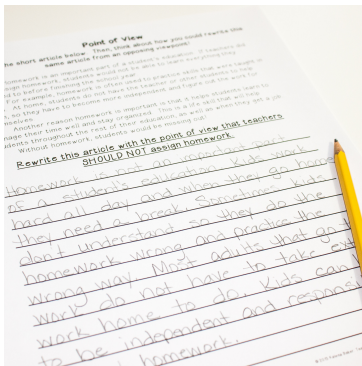 Point of View
the short article below. Then, think about how you could rewrite the
same article from an opposing viewpoint!
homework is an important part of a student's education. If teachers did
assign homework, students would not be able to learn everything they
to before finishing the school year.
For example, homework is often used to practice skills that were taught in
At home, students do not have the teacher and other students to help
so they have to become more independent and find the
themselves.
Another reason homework is important is that it helps students learn to
manage their time well and stay organized. This is a life skill that will help
students throughout the rest of their education, as well as when they get a job.
Without homework, students would be missing out!
Rewrite this article with the point of view that teachers
SHOULD NOT assign homework.
Homework is not an important
of a student's education. Kids work
hard all day and when they go home
they need a break. Sometimes kids
don't understand so they do the
homework wrong and practice the
wrong way. Most adults that go
work do not have to take
work home to do. Kids can
to be independent and
homework.